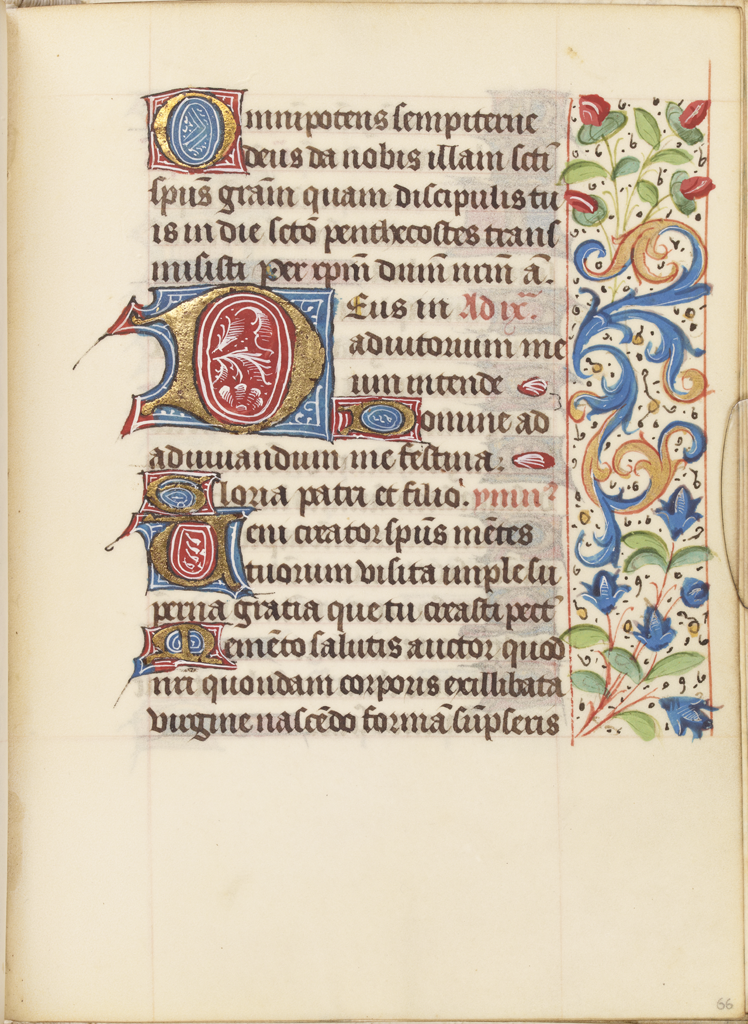 Omnipotens sempiterne
deus da nobis illam scti
spūs grām quam discipulis tu
is in die sctō penthecostes trans
misisti Per xpm̄ dnm̄ nrm̄ ā.
Deus in Ad ix.
adiutorium me
um intende
Domine ad
adiuuandum me festina:
Gloria patri et filio. ymn̄
Veni creator spūs mētes
tuorum visita imple su
perna gratia que tu creasti pect
Memēto salutis auctor quod
nr̄i quondam corporis ex illibata
virgine nascēdo formā sūpseris
66